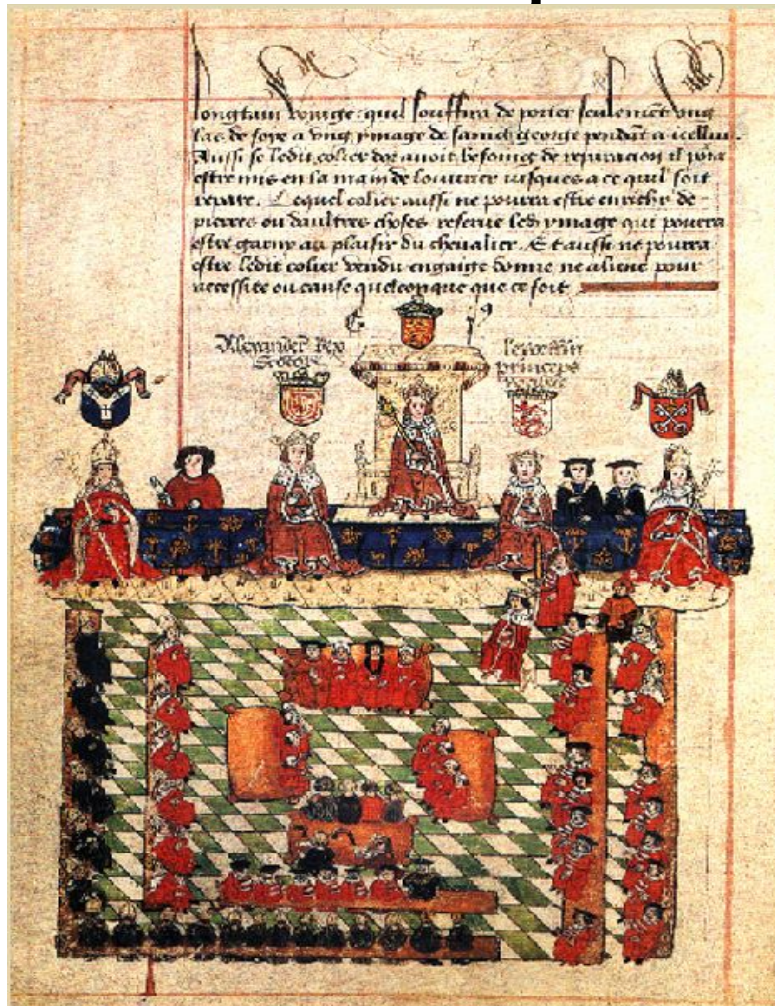 longtain voiage quil souffira de porter seulement ung
las de soye a ung ymage de sainct george pendant a icelluy
Aussi se ledit colier dor auoit besoing de reparacion il pora
estre mis en la main de louurier iusques a ce quil soit
repare. Lequel colier aussi ne pourra estre enrichy de
pierres ou daultres choses reserue led ymage qui pourra
estre garny au plaisir du cheualier. Et aussi ne pourra
estre ledit colier vendu engaige donne ne aliene pour
necessite ou cause quelconque que ce soit
Alexander Rex
Scocie
princeps